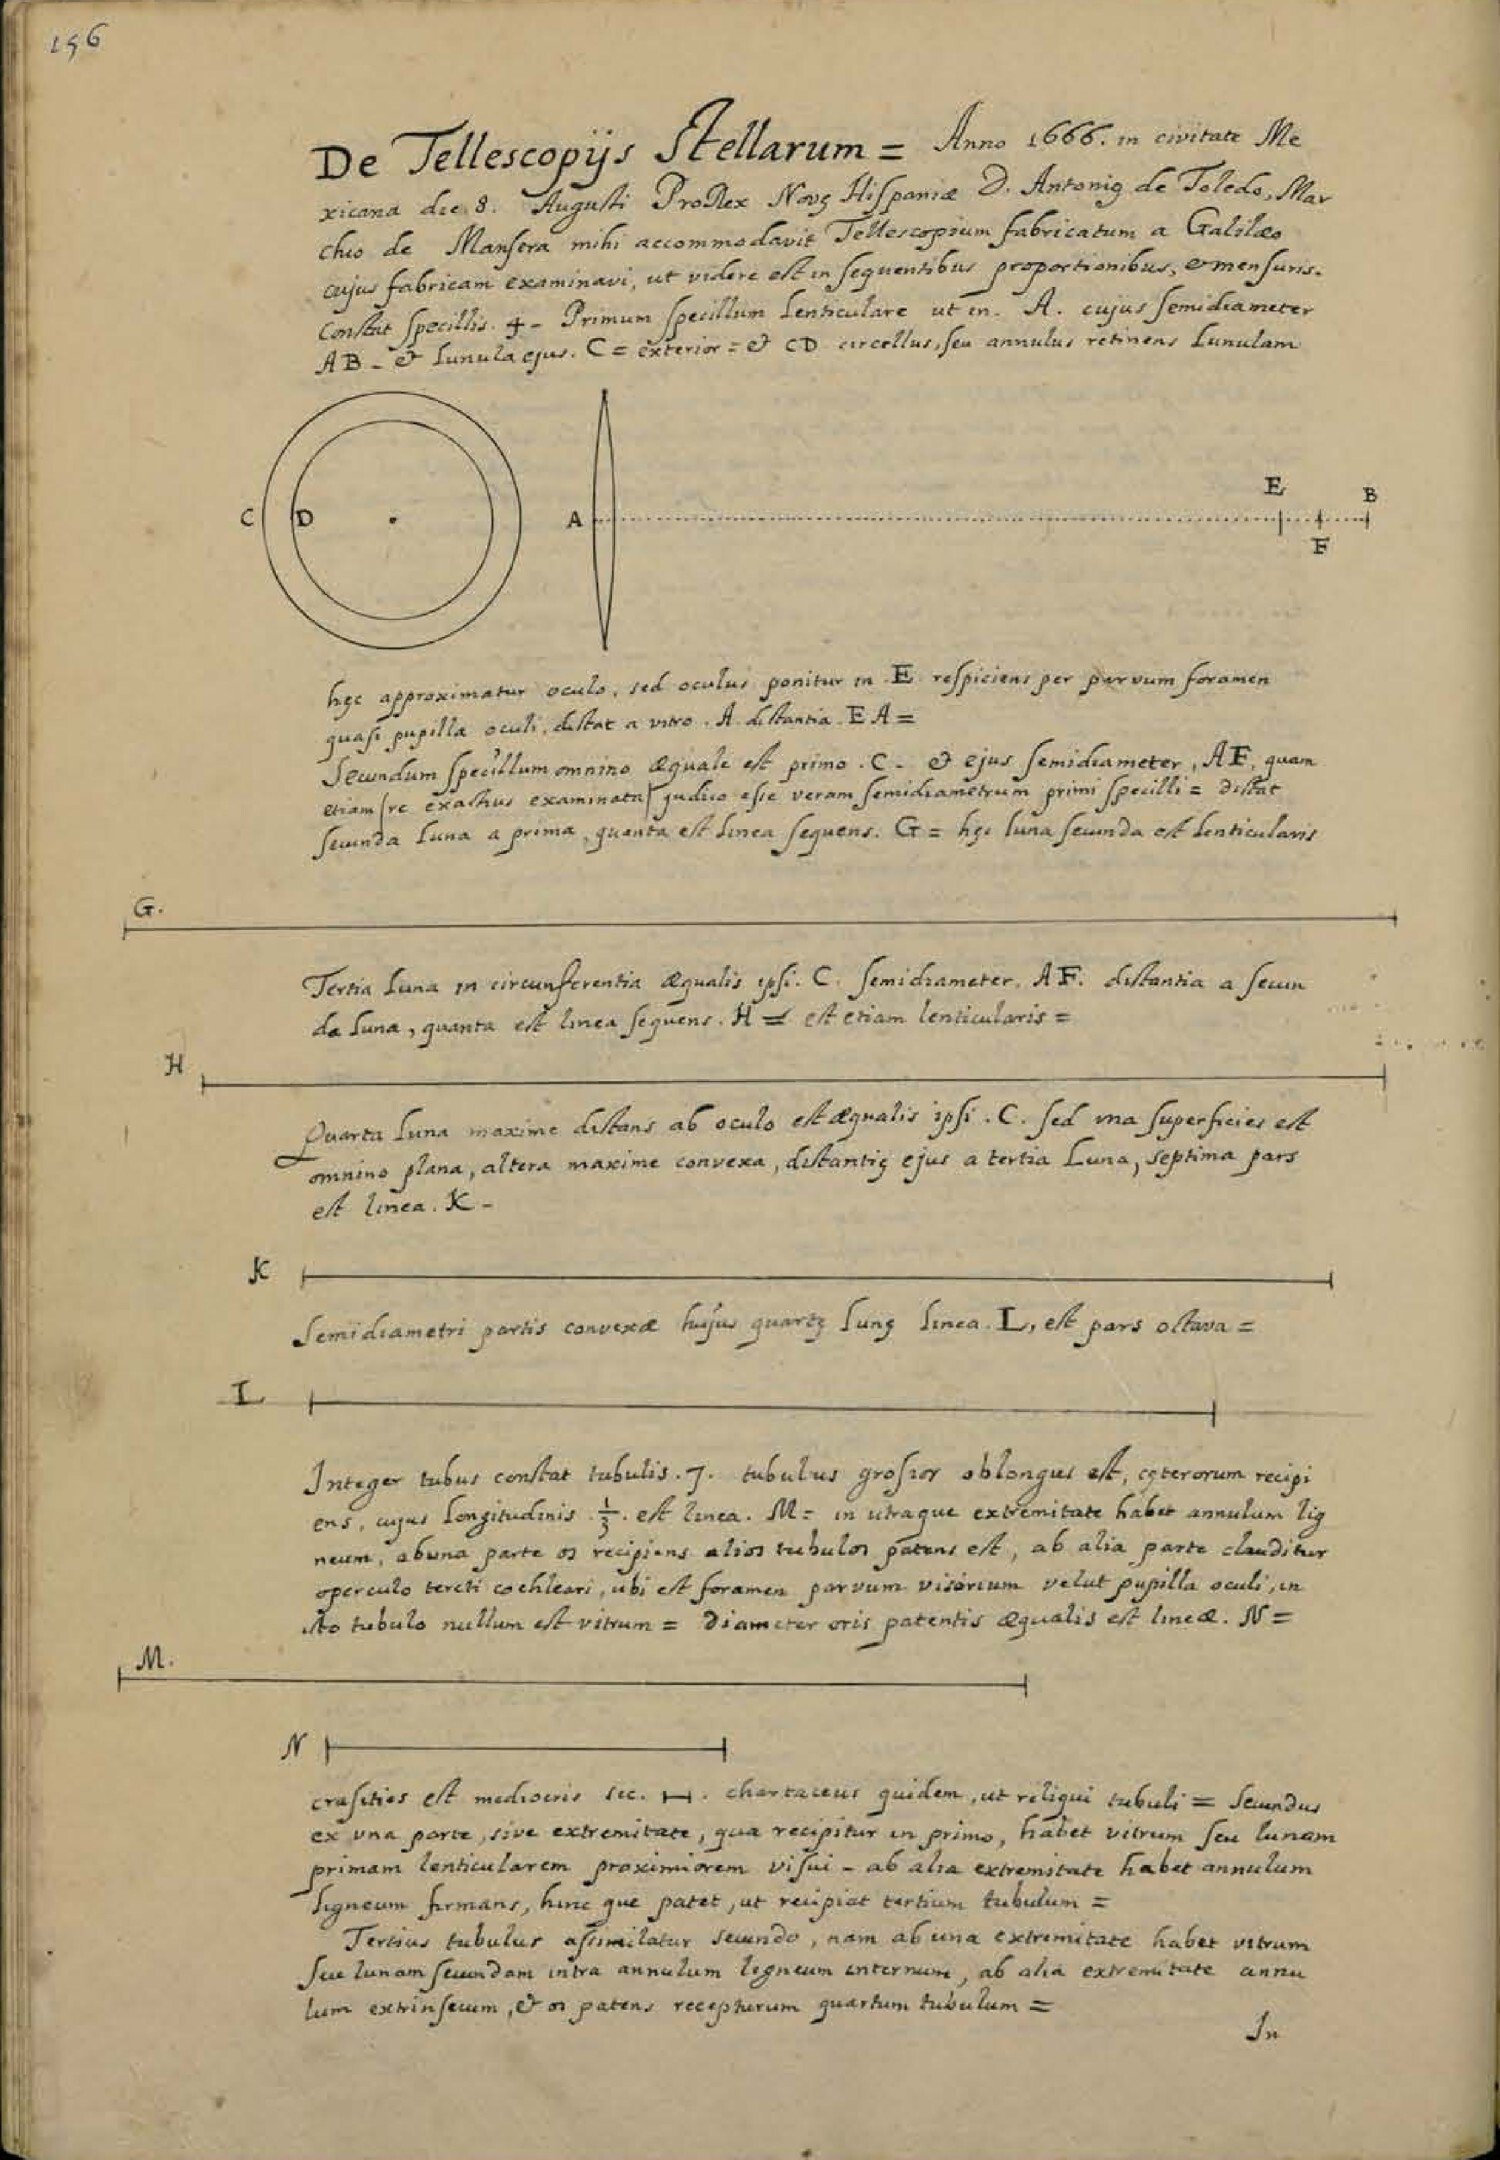 156
De Tellescopijs Stellarum = Anno 1666. in civitate Me
xicana die 8. Augusti ProRex Novę Hispaniæ D. Antonig de Toledo, Mar
chio de Mansera mihi accommodavit Tellescopium fabricatum a Galilæo
cujus fabricam examinavi, ut videre est in sequentibus proportionibus, & mensuris.
Constat specillis. 4 - Primum specillum lenticulare ut in. A. cujus semidiameter
AB - & Lunula ejus. C = exterior = & CD circellus, seu annulus retinens Lunulam
C D A E F B
hęc approximatur oculo, sed oculus ponitur in E respiciens per parvum foramen
quasi pupilla oculi, distat a vitro. A. distantia. EA =
Secundum specillum omnino æquale est primo. C - & ejus semidiameter, AF, quam
etiam [re exactius examinata] judico esse veram semidiametrum primi specilli = distat
secunda Luna a prima, quanta est linea sequens. G = hęc luna secunda est lenticularis
G.
Tertia Luna in circunferentia æqualis ipsi. C. semidiameter. AF. distantia a secun
da Luna, quanta est linea sequens. H = est etiam lenticularis =
H
Quarta Luna maxime distans ab oculo est æqualis ipsi. C. sed una superficies est
omnino plana, altera maxime convexa, distantię ejus a tertia Luna, septima pars
est linea. K -
K
Semidiametri partis convexæ hujus quartę Lunę linea. L, est pars octava =
L
Integer tubus constat tubulis. 7. tubulus grossior oblongus est, cęterorum recipi
ens, cujus longitudinis. 1/3. est linea. M = in utraque extremitate habet annulum lig
neum, ab una parte os recipiens alios tubulos patens est, ab alia parte clauditur
operculo tereti cochleari, ubi est foramen parvum visorium velut pupilla oculi, in
isto tubulo nullum est vitrum = Diameter oris patentis æqualis est lineæ. N =
M.
N
crasities est mediocris sec. chartaceus quidem, ut reliqui tubuli = Secundus
ex una parte, sive extremitate, qua recipitur in primo, habet vitrum seu lunam
primam lenticularem proximiorem visui - ab alia extremitate habet annulum
ligneum firmans, hinc que patet, ut recipiat tertium tubulum =
Tertius tubulus assimilatur secundo, nam ab una extremitate habet vitrum
seu lunam secundam intra annulum ligneum internum, ab alia extremitate annu
lum extrinsecum, & os patens recepturum quartum tubulum =
In